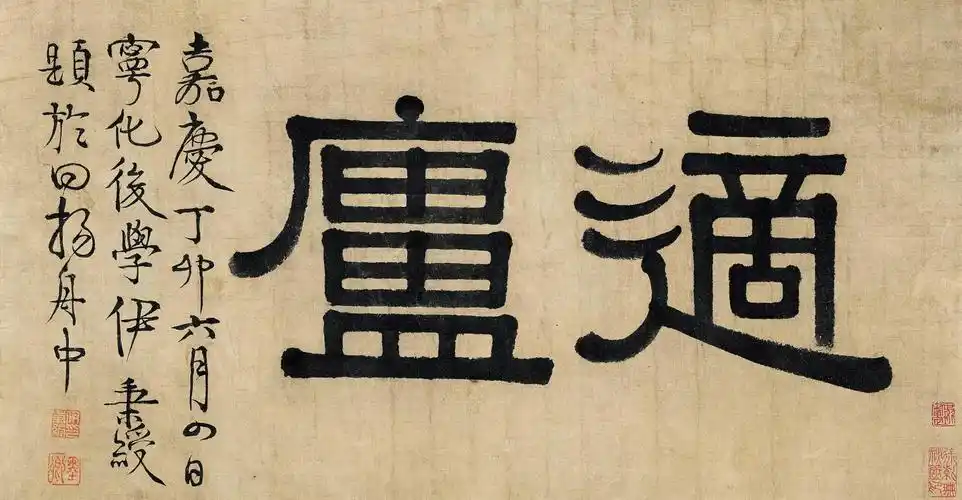 適廬
嘉慶丁卯六月四日
寧化後學伊秉綬
題於回揚舟中